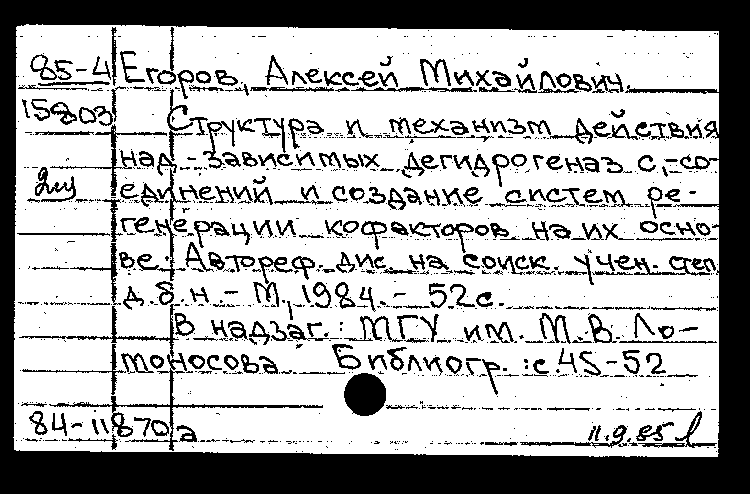 85-4 Егоров, Алексей Михайлович.
15803 Структура и механизм действия
над-зависимых дегидрогеназ с,-со-
2щ единений и создание систем ре-
генерации кофакторов на их осно-
ве: Автореф. дис. на соиск. учен. степ.
д.б.н - М., 1984. - 52с.
В надзаг.: МГУ им. М.В. Ло-
моносова Библиогр.: с.45-52
84-11870а 11.9.85